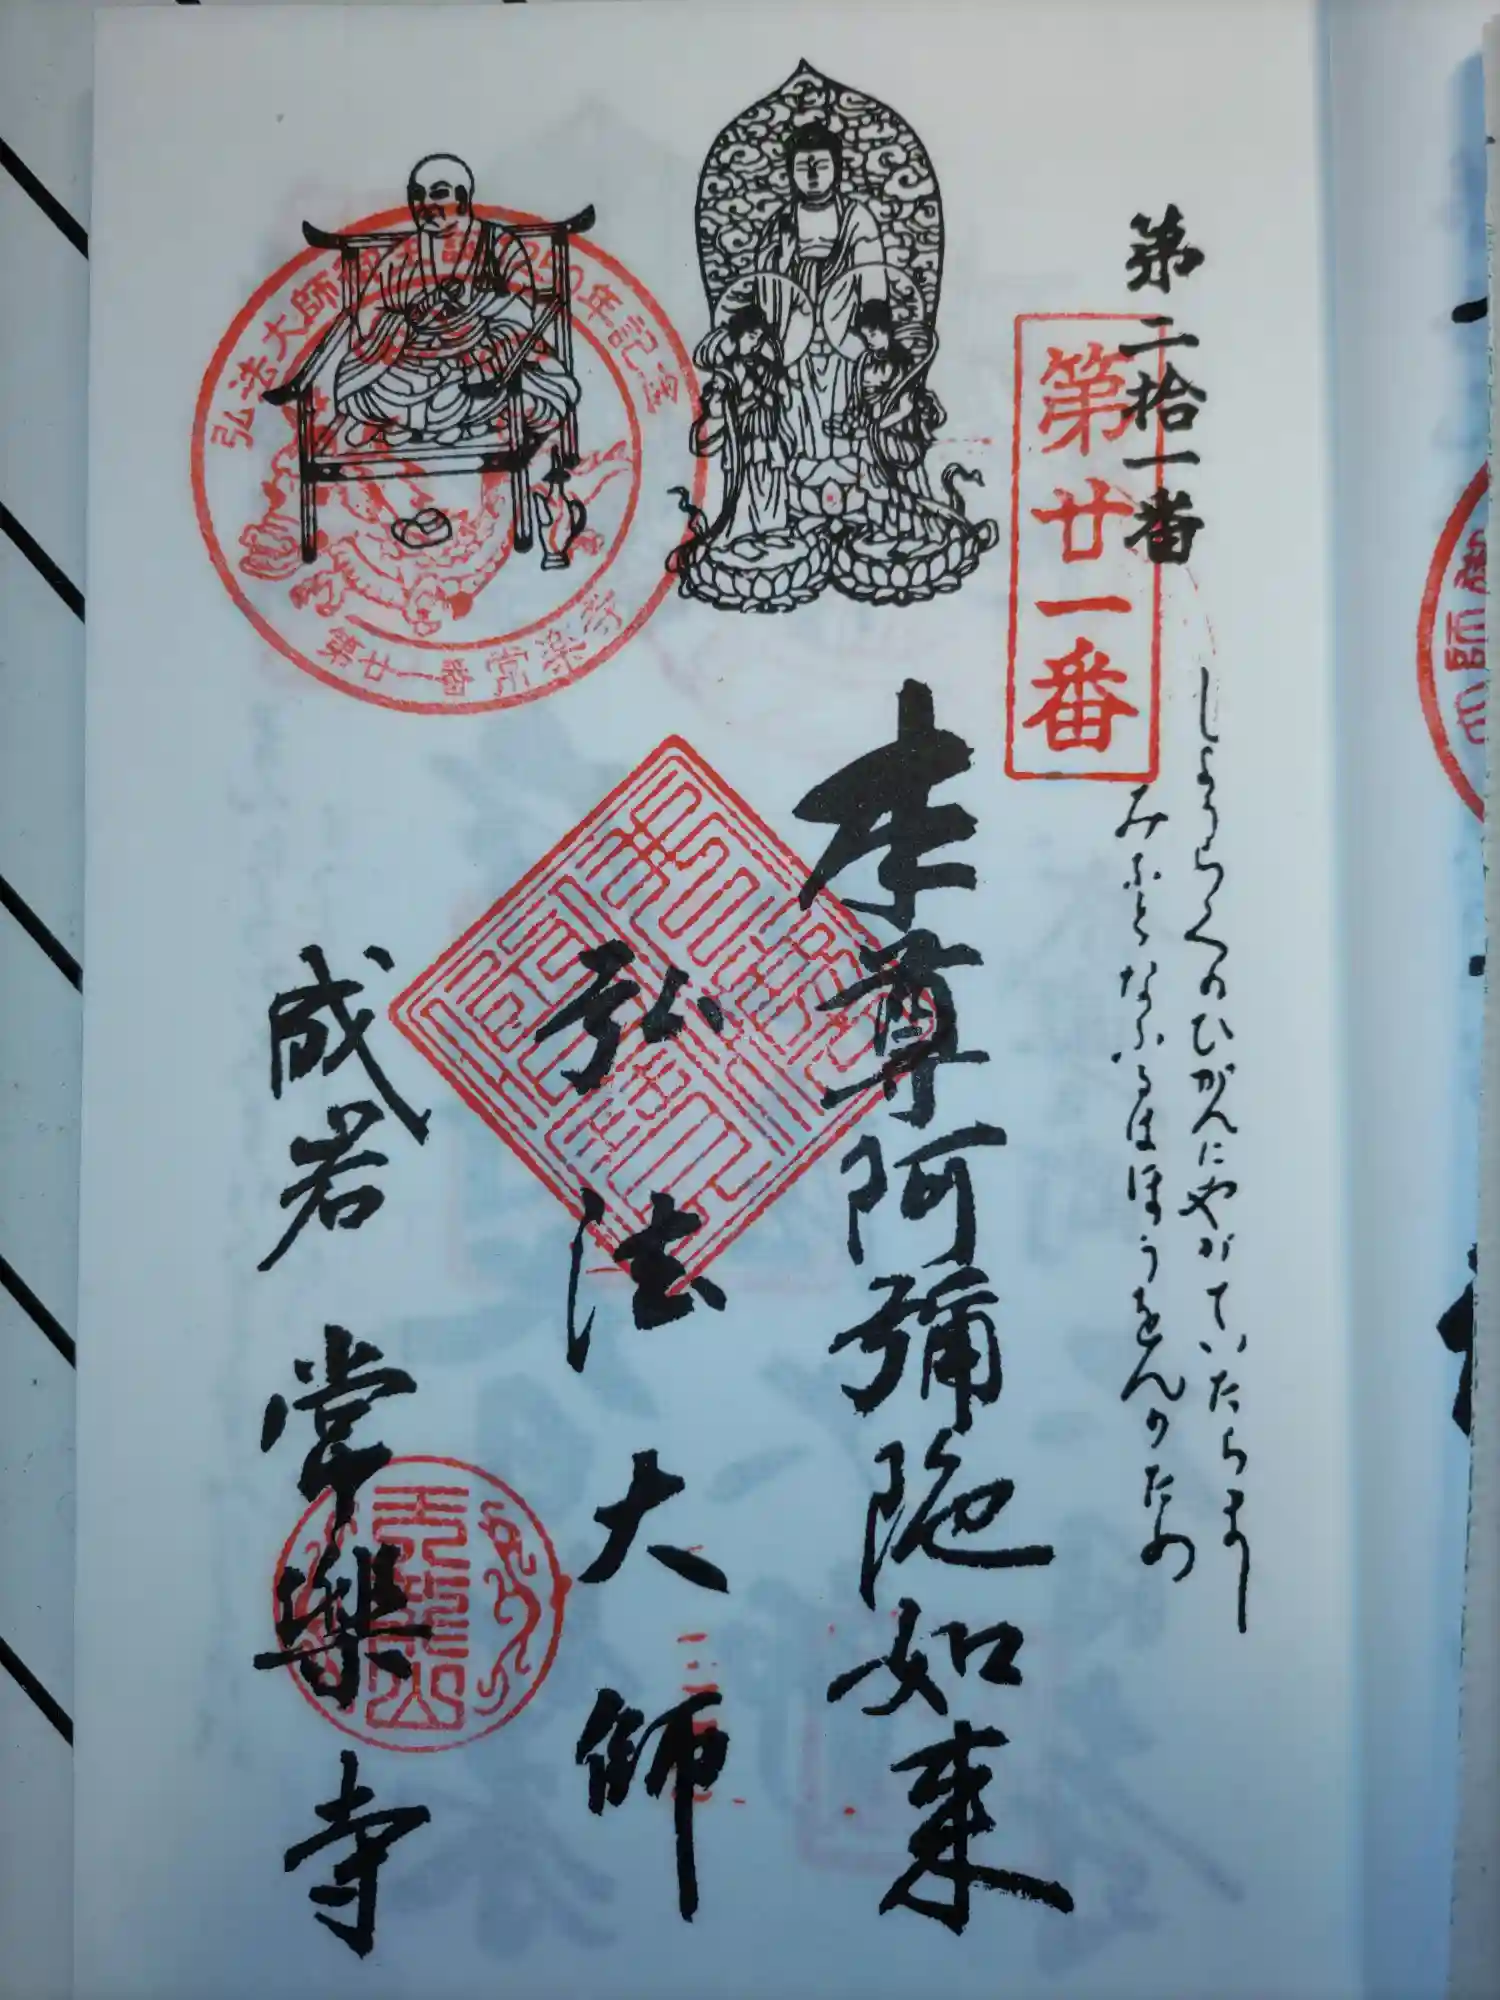 第二拾一番
第廿一番
しようらくのひがんにやがていたらまし
みなとなふるはほうをんのため
本尊阿彌陀如来
弘法大師
成若 常樂寺
弘法大師御生誕1250年記念
第廿一番常楽寺